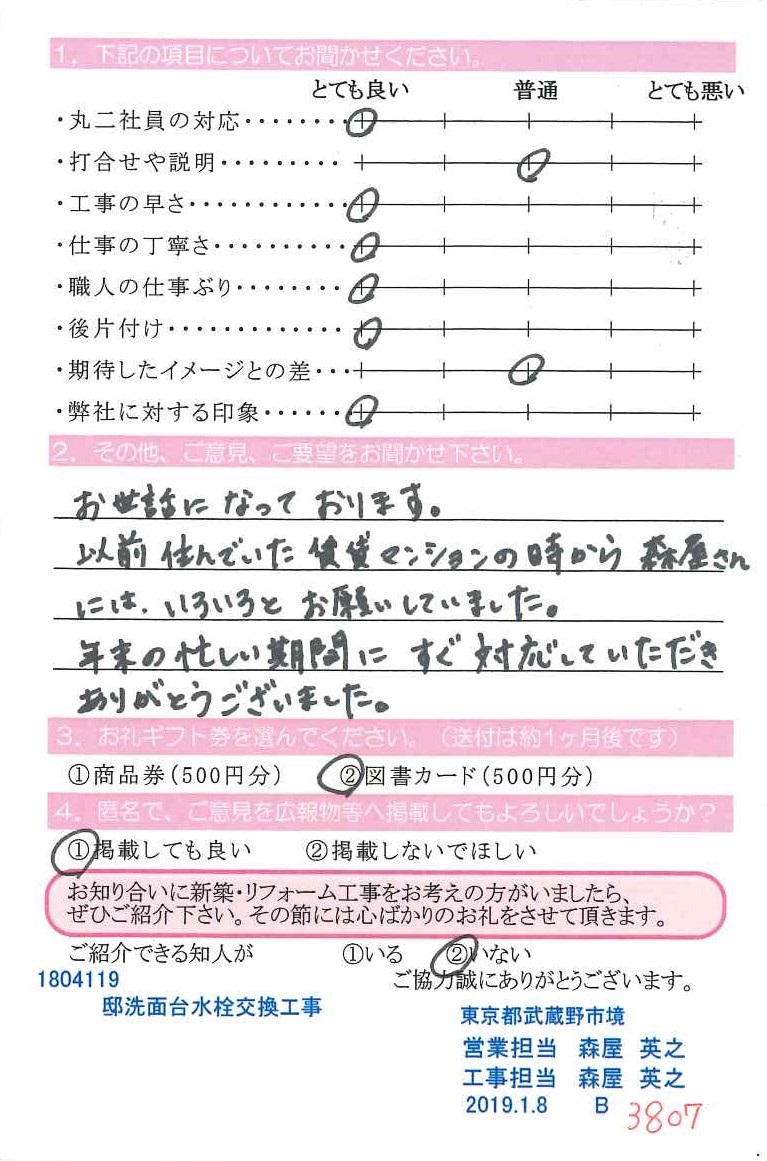 1. 下記の項目についてお聞かせください。
とても良い 普通 とても悪い
・丸二社員の対応・・・・・・・・
・打合せや説明・・・・・・・・・
・工事の早さ・・・・・・・・・・・・
・仕事の丁寧さ・・・・・・・・・・
・職人の仕事ぶり・・・・・・・・
・後片付け・・・・・・・・・・・・・
・期待したイメージとの差・・・
・弊社に対する印象・・・・・・
2. その他、ご意見、ご要望をお聞かせ下さい。
お世話になっております。
以前住んでいた賃貸マンションの時から森屋さん
には、いろいろとお願いしていました。
年末の忙しい期間にすぐ対応していただき
ありがとうございました。
3. お礼ギフト券を選んでください。(送付は約1ヶ月後です)
①商品券(500円分) ②図書カード(500円分)
4. 匿名で、ご意見を広報物等へ掲載してもよろしいでしょうか?
①掲載しても良い ②掲載しないでほしい
お知り合いに新築・リフォーム工事をお考えの方がいましたら、
ぜひご紹介下さい。その節には心ばかりのお礼をさせて頂きます。
ご紹介できる知人が ①いる ②いない
1804119 ご協力誠にありがとうございます。
邸洗面台水栓交換工事
東京都武蔵野市境
営業担当 森屋 英之
工事担当 森屋 英之
2019.1.8 B 3807